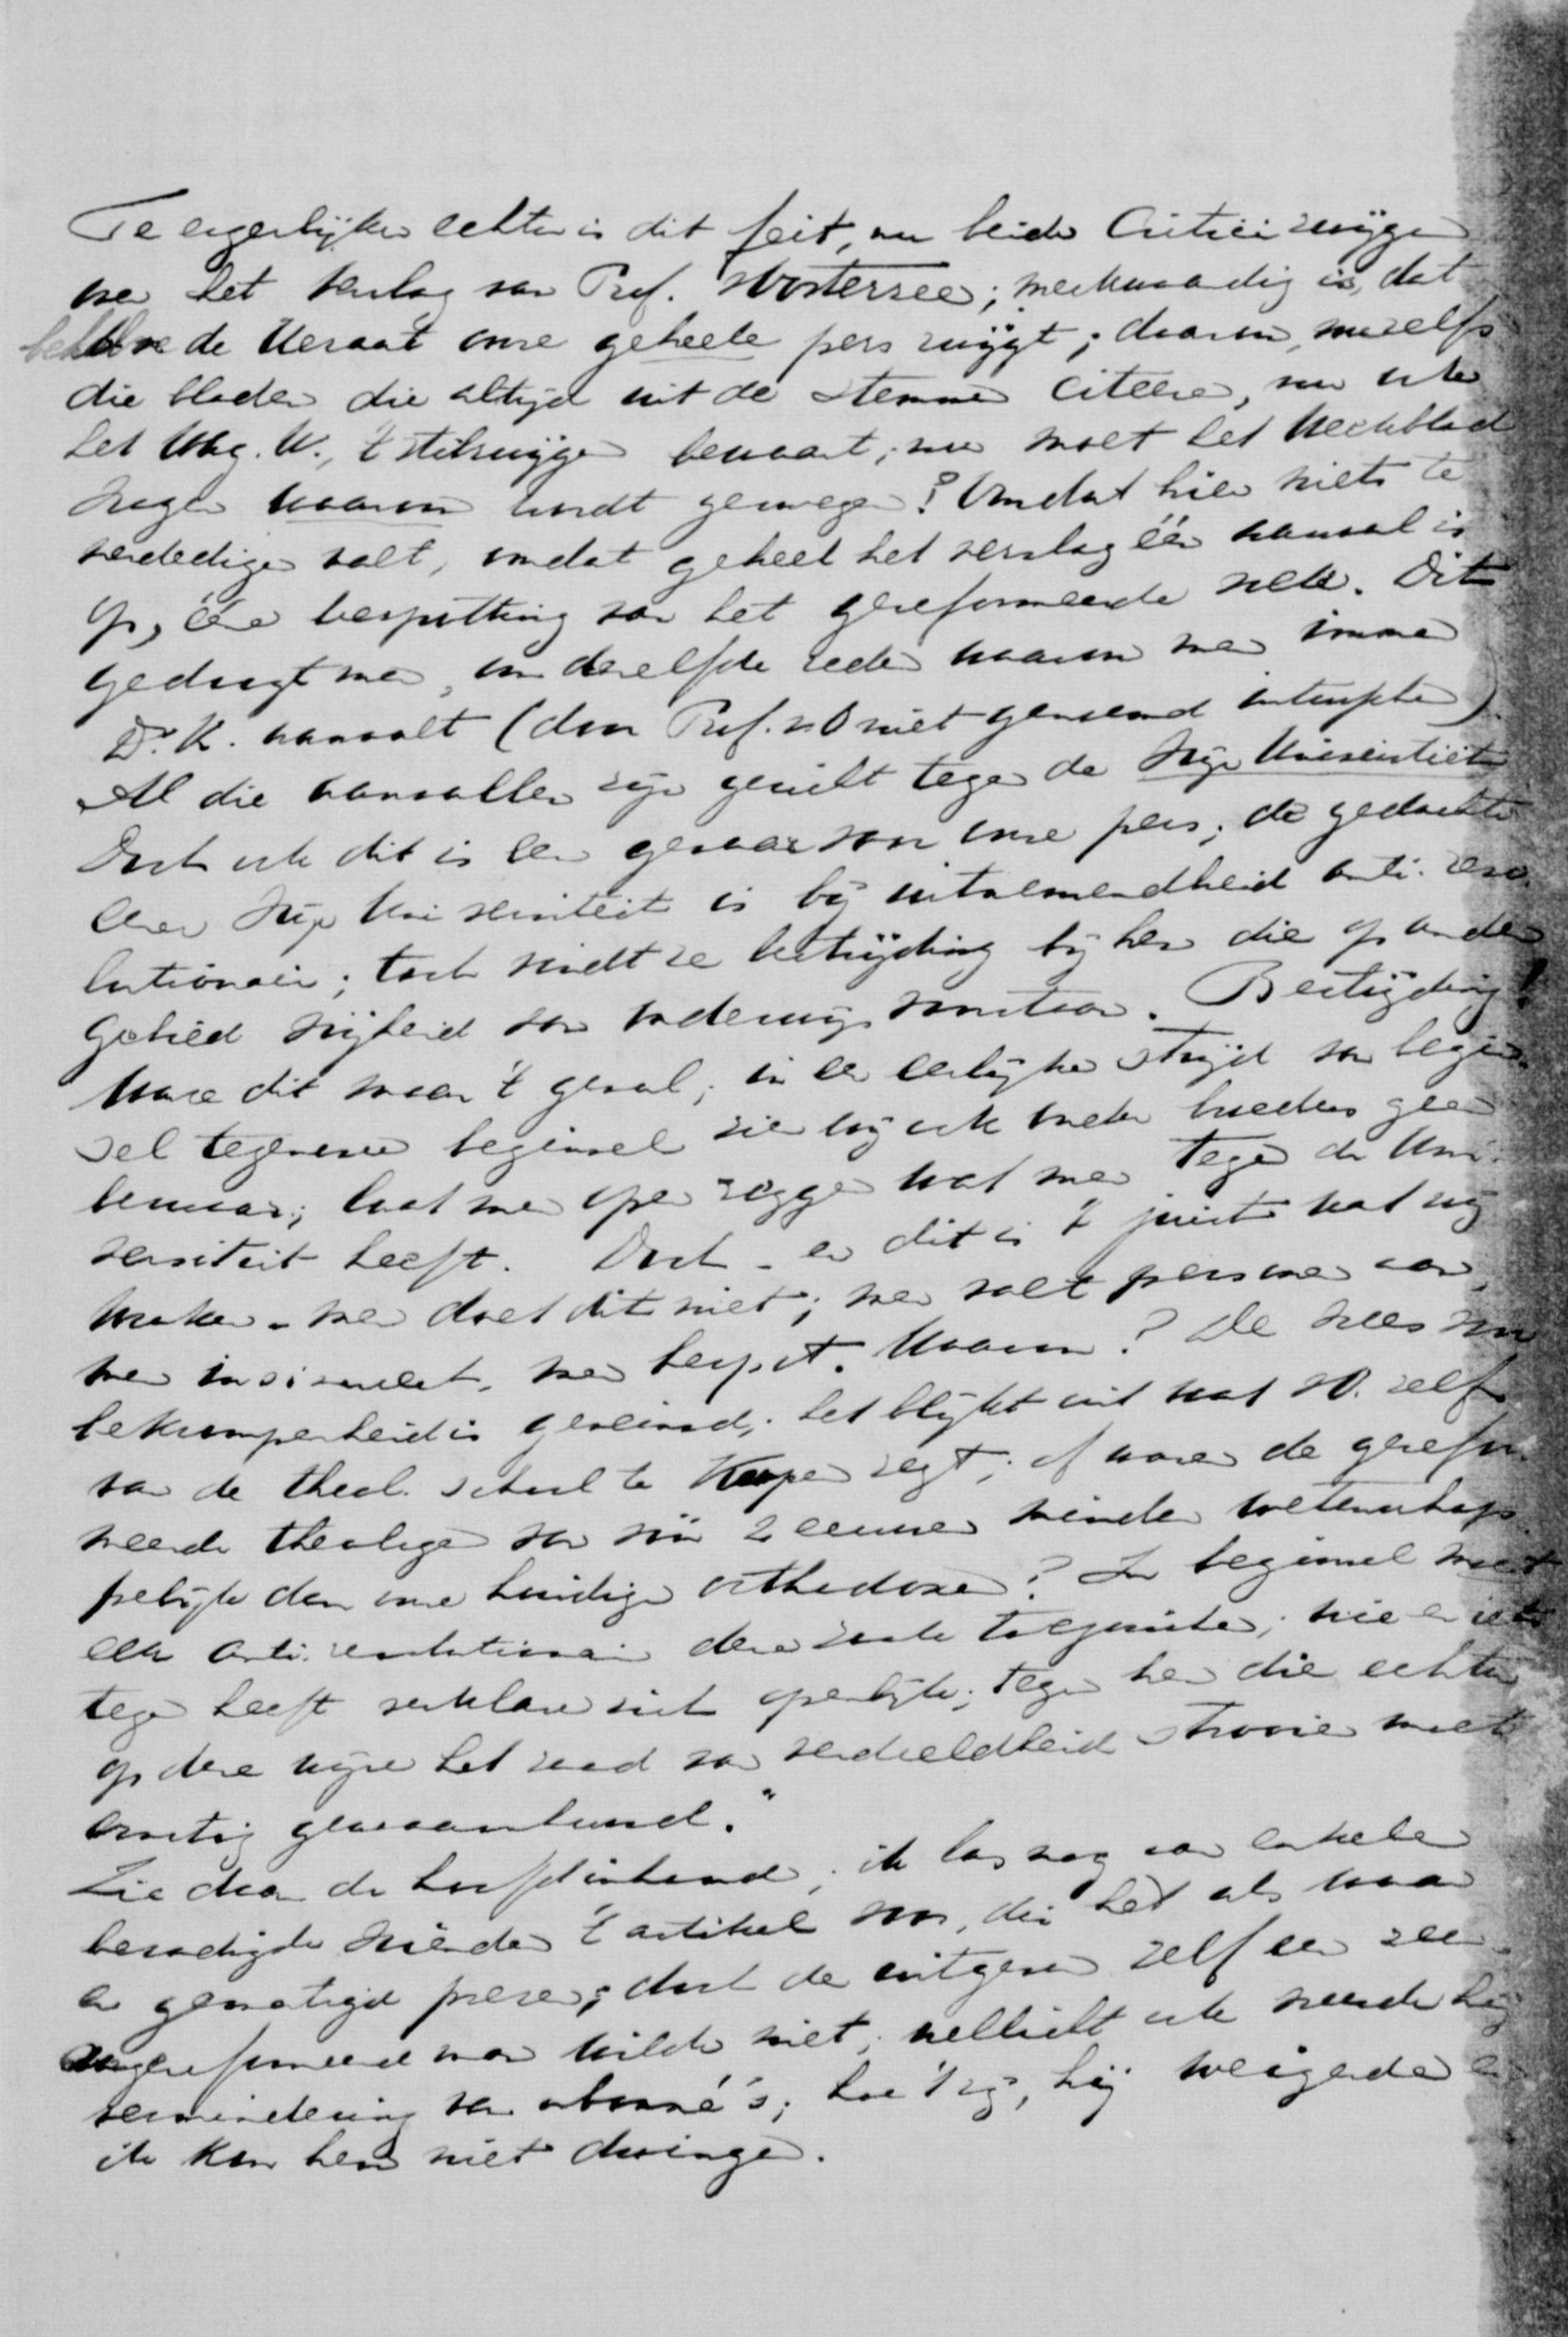 Te eigenlijker echter is dit feit, nu beide Critici zwijgen
over het verslag van Prof. v Oosterzee; merkwaardig is, dat
behalve de Heraut onze geheele pers zwijgt; daarom, nu zelfs
die bladen die altijd uit de Stemmen citeeren, nu ook
het Wag. W., 't stilzwijgen bewaart, nu moet het Weekblad
vragen waarom wordt gezwegen? Omdat hier niets te
verdedigen valt, omdat geheel het verslag één aanval is
op, ééne bespotting van het gereformeerde volk. Dit
gedoogt men, om dezelfde reden waarom men immer
Dr. K. aanvalt (door Prof. v. O niet genoemd intusschen).
Al die aanvallen zijn gericht tegen de Vrije Universiteit
Doch ook dit is een gevaar voor onze pers; de gedachte
eener Vrije Universiteit is bij uitnemendheid anti-revo-
lutionair; toch vindt ze bestrijding bij hen die op ander
gebied vrijheid van onderwijs voorstaan. Bestrijding!
Ware dit maar 't geval; in een eerlijken strijd van begin-
sel tegenover beginsel zien wij ook onder broeders geen
bezwaar; laat men open zeggen wat men tegen de Uni-
versiteit heeft. Doch - en dit is 't juist wat wij
wraken - men doet dit niet; men valt personen aan,
men insinueert, men bespot. Waarom? De vrees voor
bekrompenheid is geveinsd; het blijkt uit wat v O. zelf
van de theol. school te Kampen zegt; of waren de gerefor-
meerde theologen van vóór 2 eeuwen minder wetenschap-
pelijk dan onze huidige orthodoxen? In beginsel moet
elk anti-revolutionair deze zaak toejuichen; wie er iets
tegen heeft verklare zich openlijk; tegen hen die echter
op deze wijze het zaad van verdeeldheid strooien moet
ernstig gewaarschuwd."
Zie daar de hoofdinhoud; ik las nog aan enkele
bezadigde vrienden 't artikel voor, die het als waar
en gematigd prezen; doch de uitgever zelf een zeer
ongereformeerd man wilde niet; wellicht ook vreesde hij
vermindering van abonné's; hoe 't zij, hij weigerde en
ik kon hem niet dwingen.